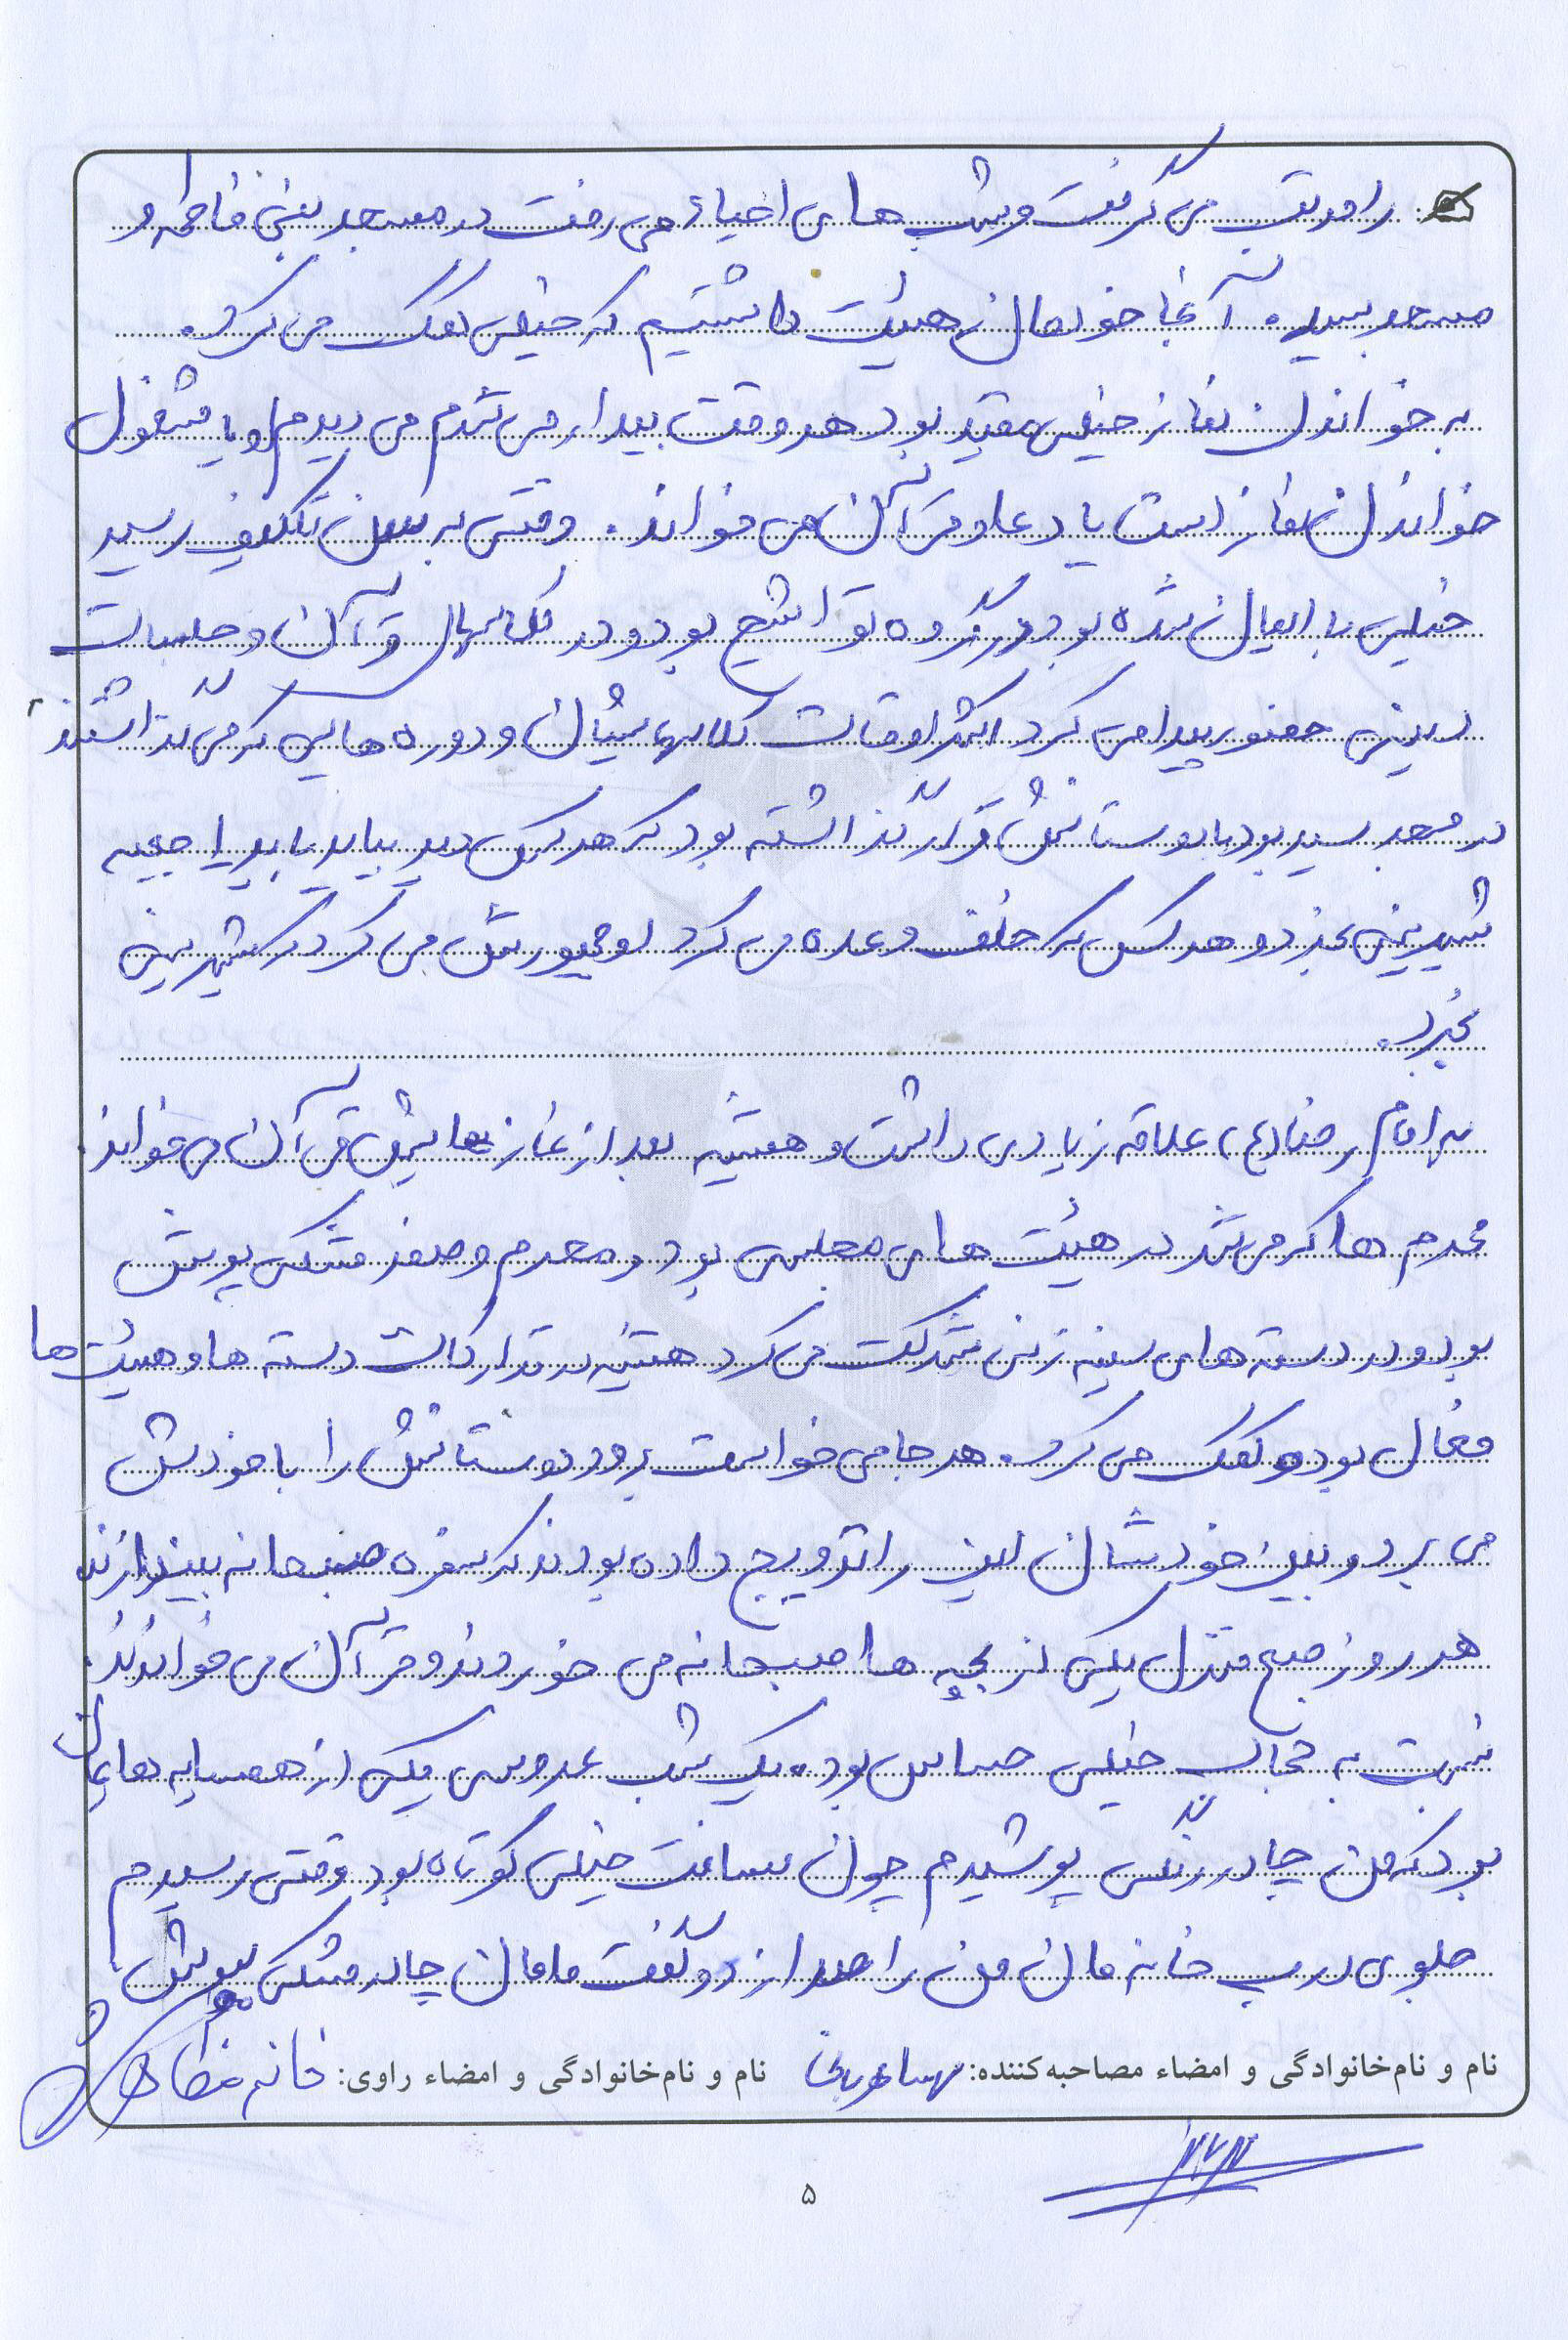 را مرتب می گرفت و شب های احیاء می رفت در مسجد بنی فاطمه و
مسجد سید. آنجا خودمان هیئت داشتیم که خیلی کمک می کرد.
به خواندن نماز خیلی مقید بود هر وقت بیدار می شدم می دیدم او یا مشغول
خواندن نماز است یا دعا و قرآن می خواند. وقتی به سن تکلیف رسید
خیلی با ایمان شده بود در گروه تواشیح بود و در کلاسهای قرآن و جلسات
دینی حضور پیدا می کرد اکثر اوقات کلاسهایشان و دوره هایی که می گذاشتند
در مسجد سید بود با دوستانش قرار گذاشته بود که هر کس دیر بیاید باید جعبه
شیرینی بخرد و هر کس که خلف وعده می کرد او مجبورش می کرد که شیرینی
بخرد.
به امام رضا (ع) علاقه زیادی داشت و همیشه بعد از نمازهایش قرآن می خواند.
محرم ها که می شد در هیئت های مجلسی بود در محرم و صفر مشکی پوش
بود و در دسته های سینه زنی شرکت می کرد همیشه در تدارکات دسته ها و هیئت ها
فعال بود و کمک می کرد. هر جا می خواست برود دوستانش را با خودش
می برد و بین خودشان این را ترویج داده بودند که سفره صبحانه بیندازند
هر روز صبح منزل یکی از بچه ها صبحانه می خوردند و قرآن می خواندند.
نسبت به حجاب خیلی حساس بود. یک شب عروسی یکی از همسایه هایمان
بود که من چادر رنگی پوشیدم چون مسافت خیلی کوتاه بود وقتی رسیدم
جلوی درب خانه مان من را صدا زد و گفت مامان چادر مشکی بپوش
نام و نام‌خانوادگی و امضاء مصاحبه‌کننده: مهسا نام و نام‌خانوادگی و امضاء راوی: خانم
۵